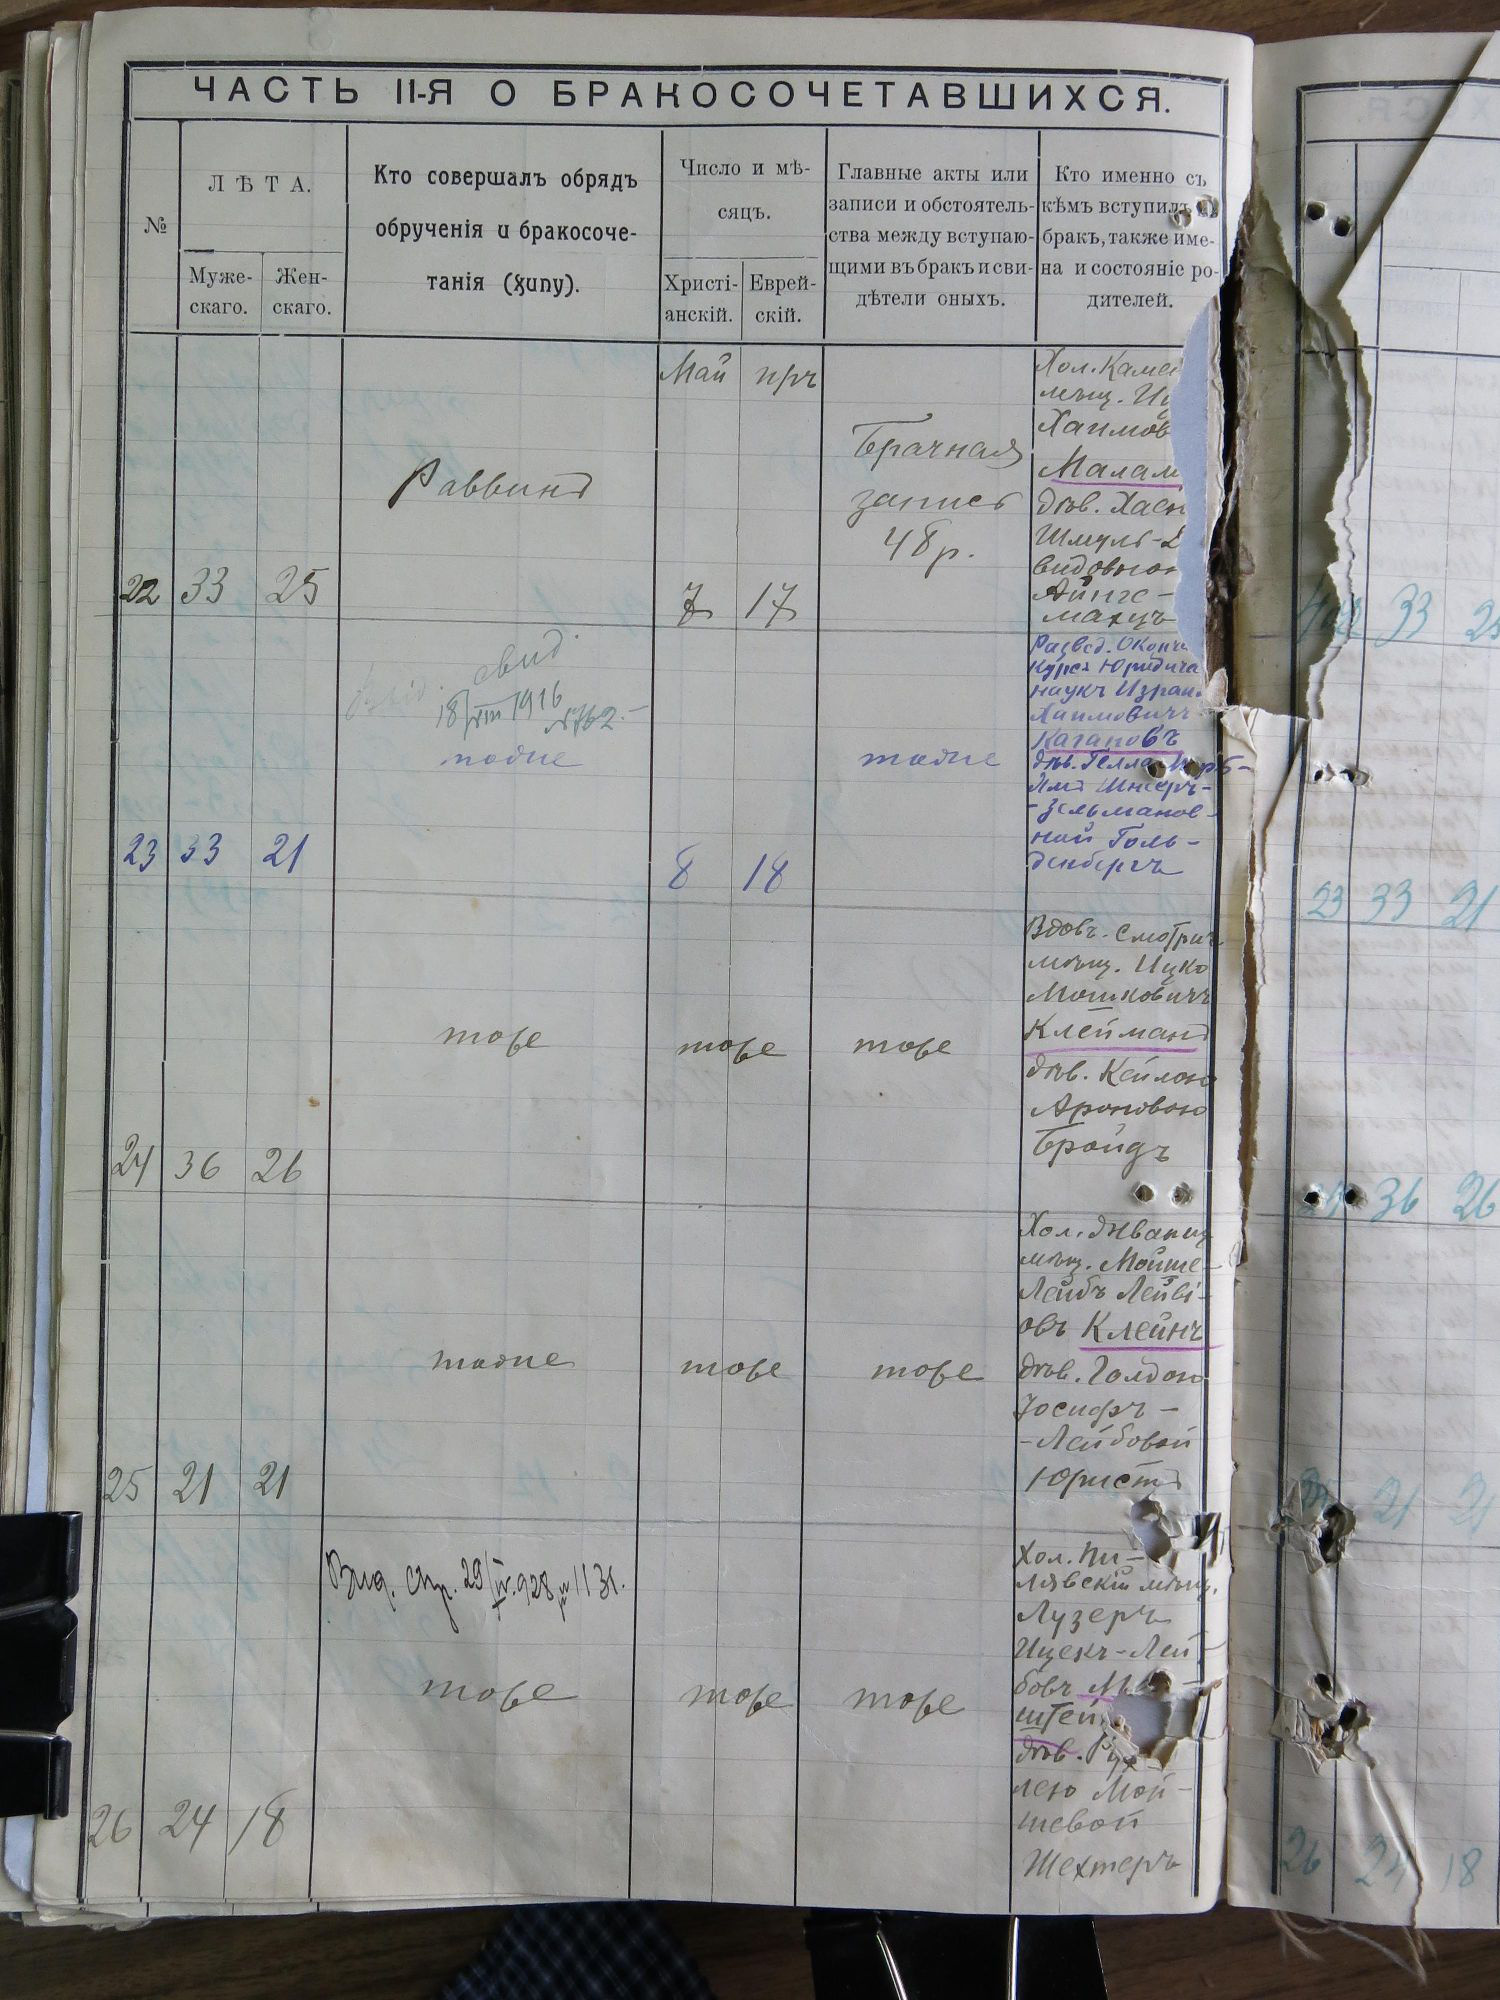 ЧАСТЬ II-Я О БРАКОСОЧЕТАВШИХСЯ.
№
ЛѢТА.
Муже-
скаго.
Жен-
скаго.
Кто совершалъ обрядъ
обрученія и бракосоче-
танія (хупу).
Число и мѣ-
сяцъ.
Христі-
анскій.
Еврей-
скій.
Главные акты или
записи и обстоятель-
ства между вступаю-
щими въ бракъ и сви-
дѣтели оныхъ.
Кто именно съ
кѣмъ вступилъ
бракъ, также име-
на и состояніе ро-
дителей.
22 33 25
Раввинъ
Май
7 17
Брачная
запись
48 р.
Хол. Каме
мѣщ. Иц
Хаимов
Малам
дѣв.
Шмуль-
Айнге-
23 33 21
свид.
18/VIII 1916
№ 762.
тоже
8 18
тоже
Развед.
курсъ Юридиче
наукъ Изра
Хаимовичъ
Кагановъ
дѣв.
-Зельманов-
ной Голь-
денбергъ
24 36 26
тоже
тоже
тоже
Вдовъ. Смотрич
мѣщ. Ицко
Мошковичъ
Клейманъ
дѣв. Кейлою
Ароновою
Бройдъ
25 21 21
тоже
тоже
тоже
Хол. Жванец
мѣщ. Мойше-
Лейбъ Лейбі-
овъ Клейнъ
дѣв. Голдою
Іосифъ-
-Лейбовой
Юристъ
26 24 18
Выд. спр. 29/IV.928 № 1131.
тоже
тоже
тоже
Хол. Пи-
лявскій мѣщ.
Лузеръ
Ицекъ-Лей-
бовъ М
штей
дѣв. Рух-
лею Мой-
шевой
Шехтеръ
33
23 33 21
36 26
21 21
26 24 18